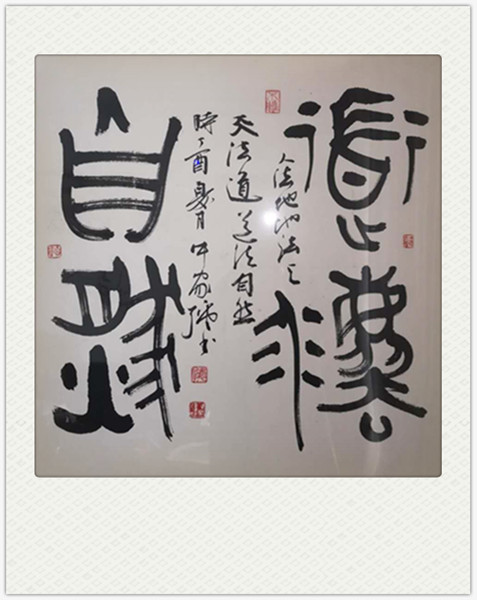 道灋
人法地地法天
天法道道法自然
時丁酉夏月
自然